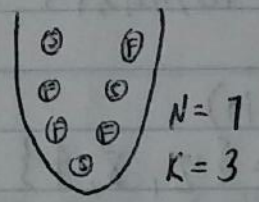 S F
F S
F F
S
N = 7
K = 3